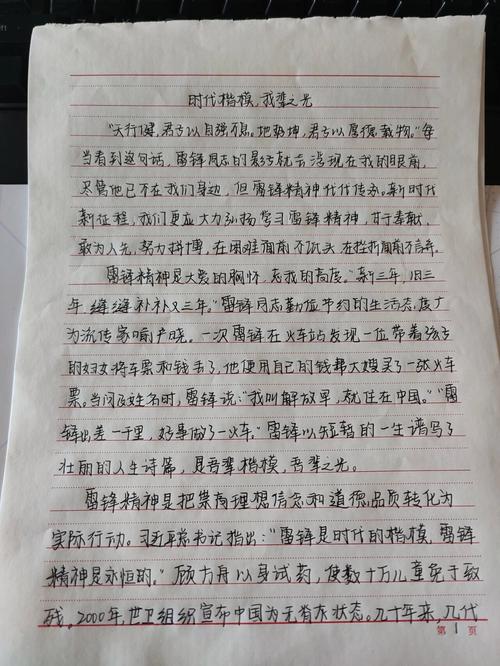 时代楷模,我辈之光
“天行健,君子以自强不息。地势坤,君子以厚德载物。”每
当看到这句话,雷锋同志的影子就会浮现在我的眼前,
尽管他已不在我们身边,但雷锋精神代代传承。新时代
新征程,我们更应大力弘扬学习雷锋精神,甘于奉献,
敢为人先,努力拼搏,在困难面前不低头,在挫折面前不言弃。
雷锋精神是大爱的胸怀,忘我的高度。“新三年,旧三
年,缝缝补补又三年。”雷锋同志勤俭节约的生活态度广
为流传家喻户晓。一次雷锋在火车站发现一位带着孩子
的妇女将车票和钱丢了,他便用自己的钱帮大嫂买了一张火车
票。当问及姓名时,雷锋说:“我叫解放军,就住在中国。”“雷
锋出差一千里,好事做了一火车。”雷锋以短暂的一生谱写了
壮丽的人生诗篇,是吾辈楷模,吾辈之光。
雷锋精神是把崇高理想信念和道德品质转化为
实际行动。习近平总书记指出:“雷锋是时代的楷模,雷锋
精神是永恒的。”顾方舟以身试药,使数十万儿童免于致
残。2000年,世卫组织宣布中国为无脊灰状态。几十年来,几代
第 1 页